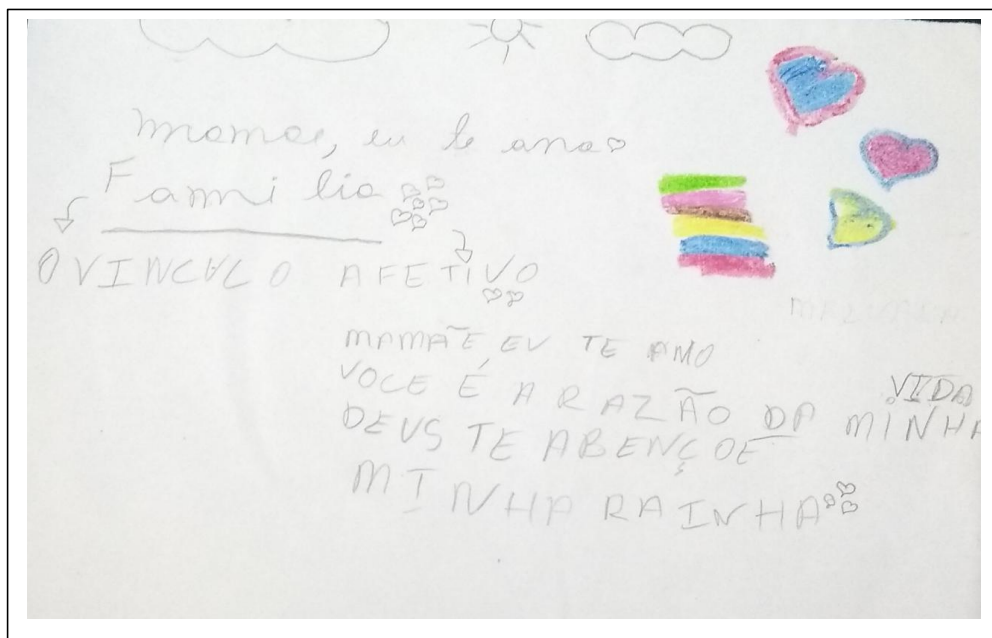 mamãe, eu te amo
Familia
O VINCULO AFETIVO
MAMÃE EU TE AMO
VOCE É A RAZÃO DA MINHA VIDA
DEUS TE ABENÇOE
MINHA RAINHA